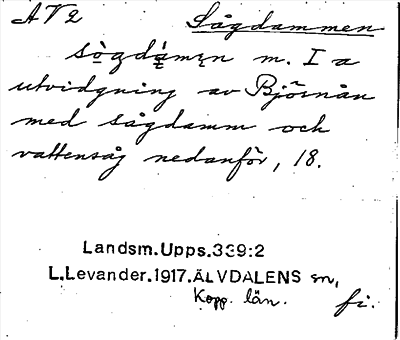 AV2 Sågdammen
sògdámȩn m. I a
utvidgning av Björnån
med sågdamm och
vattensåg nedanför, 18.
Landsm.Upps.339:2
L.Levander.1917.ÄLVDALENS sn,
Kopp. län. fi.